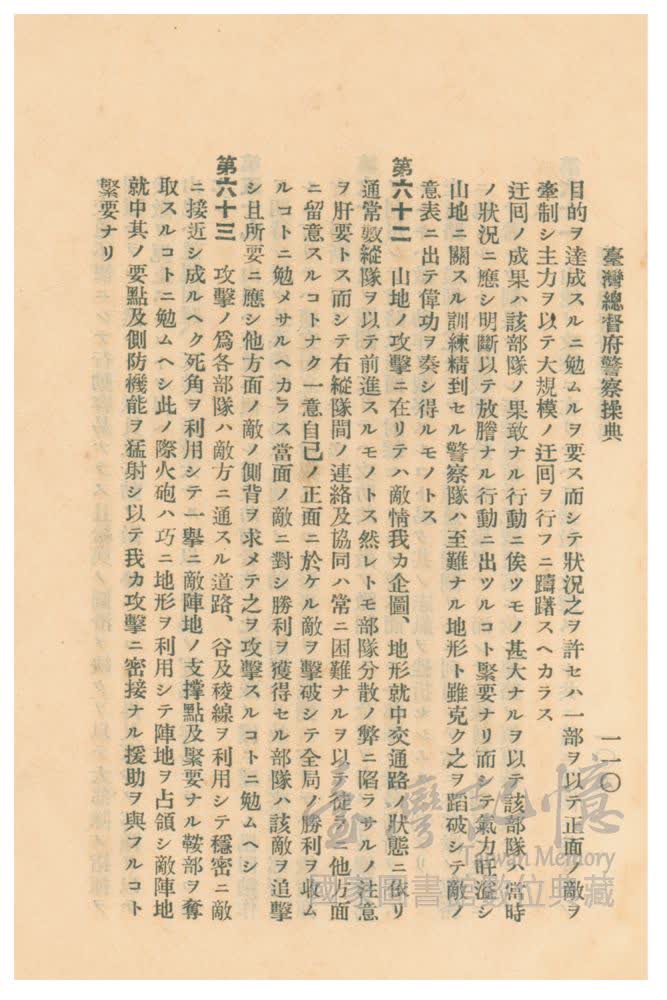 臺灣總督府警察操典
一一〇
目的ヲ達成スルニ勉ムルヲ要ス而シテ狀況之ヲ許セハ一部ヲ以テ正面ノ敵ヲ
牽制シ主力ヲ以テ大規模ノ迂囘ヲ行フニ躊躇スヘカラス
迂囘ノ成果ハ該部隊ノ果敢ナル行動ニ俟ツモノ甚大ナルヲ以テ該部隊ハ當時
ノ狀況ニ應シ明斷以テ放膽ナル行動ニ出ツルコト緊要ナリ而シテ氣力旺溢シ
山地ニ關スル訓練精到セル警察隊ハ至難ナル地形ト雖克ク之ヲ蹈破シテ敵ノ
意表ニ出テ偉功ヲ奏シ得ルモノトス
第六十二　山地ノ攻擊ニ在リテハ敵情我カ企圖、地形就中交通路ノ狀態ニ依リ
通常數縱隊ヲ以テ前進スルモノトス然レトモ部隊分散ノ弊ニ陷ラサルノ注意
ヲ肝要トス而シテ右縱隊間ノ連絡及協同ハ常ニ困難ナルヲ以テ徒ラニ他方面
ニ留意スルコトナク一意自己ノ正面ニ於ケル敵ヲ擊破シテ全局ノ勝利ヲ收ム
ルコトニ勉メサルヘカラス當面ノ敵ニ對シ勝利ヲ獲得セル部隊ハ該敵ヲ追擊
シ且所要ニ應シ他方面ノ敵ノ側背ヲ求メテ之ヲ攻擊スルコトニ勉ムヘシ
第六十三　攻擊ノ爲各部隊ハ敵方ニ通スル道路、谷及稜線ヲ利用シテ穩密ニ敵
ニ接近シ成ルヘク死角ヲ利用シテ一擧ニ敵陣地ノ支撐點及緊要ナル鞍部ヲ奪
取スルコトニ勉ムヘシ此ノ際火砲ハ巧ニ地形ヲ利用シテ陣地ヲ占領シ敵陣地
就中其ノ要點及側防機能ヲ猛射シ以テ我カ攻擊ニ密接ナル援助ヲ與フルコト
緊要ナリ
臺灣記憶
Taiwan Memory
國家圖書館數位典藏